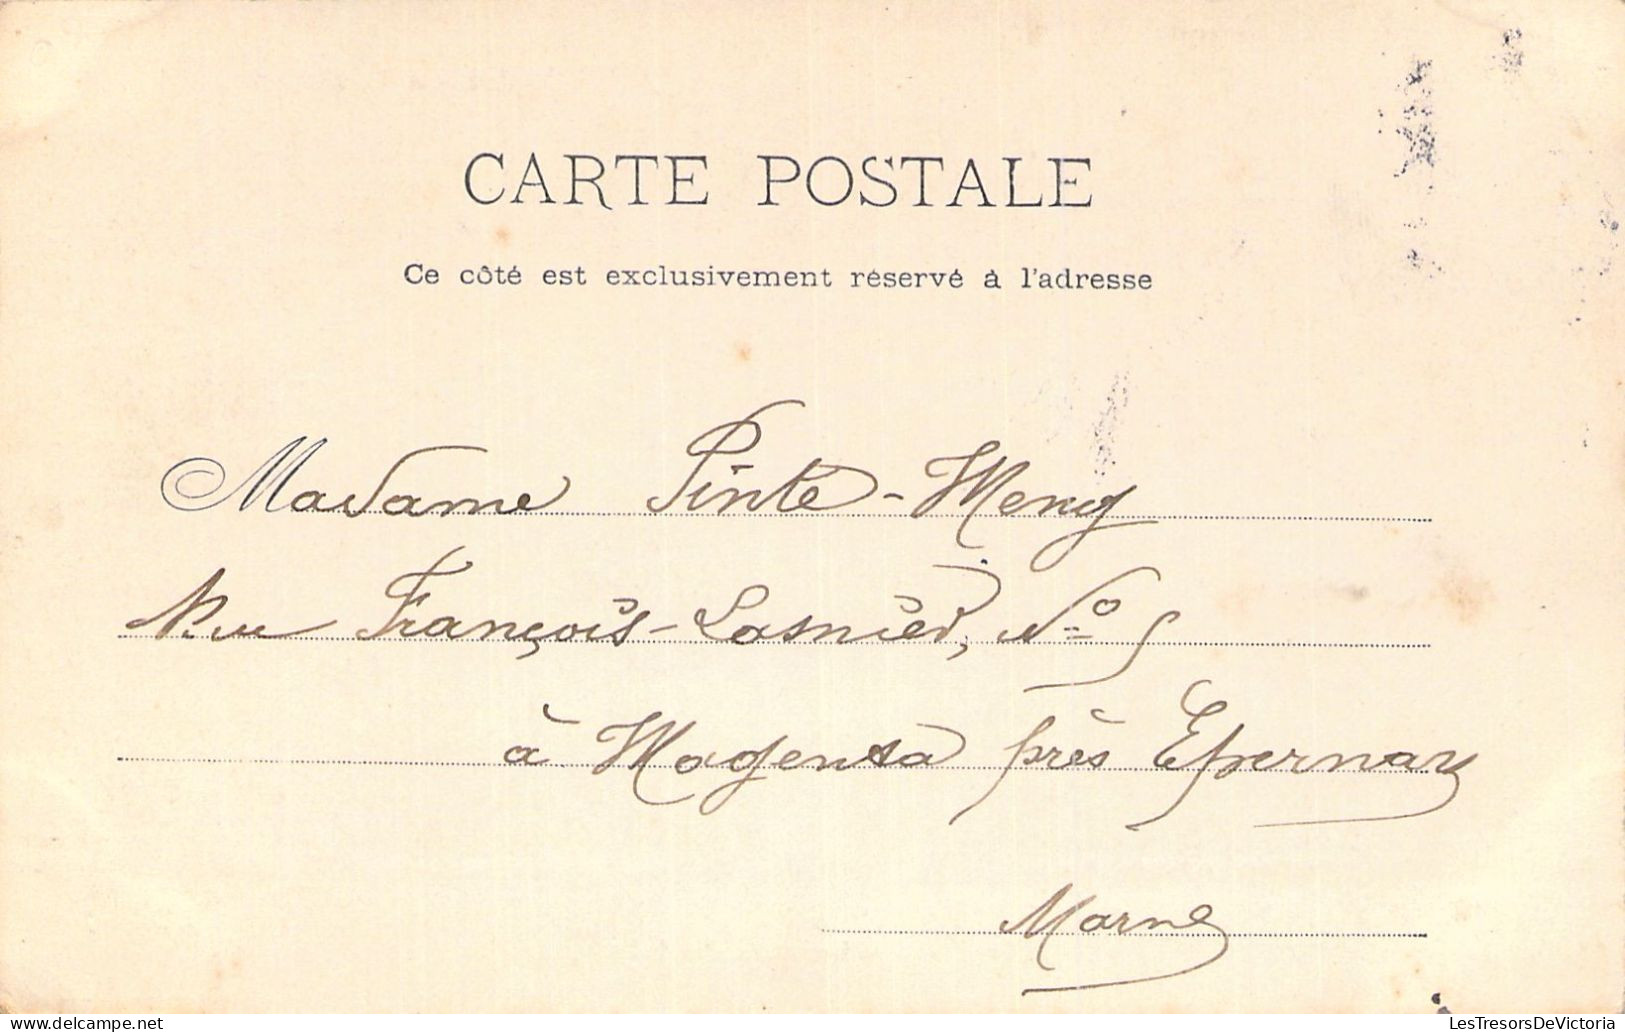 CARTE POSTALE
Ce côté est exclusivement réservé à l'adresse
Madame Pinte-Meny
Rue François-Lasnier, No 5
à Magenta près Epernay
Marne
LesTresorsDeVictoria